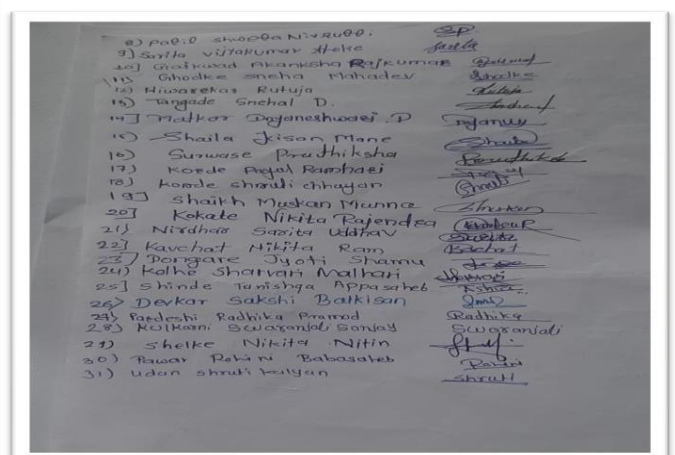 8) Patil Shobha Nivrutti. SP
9) Sarita Vijaykumar Heke Sarita
10] Gaikwad Akanksha Rajkumar
11) Ghodke Sneha Mahadev Ghodke
12) Hiwarekar Rutuja Rutuja
13) Tangade Snehal D.
14] Matkar Dnyaneshwari .D
15) Shaila Kisan Mane Shaila
16) Surwase Pruthiksha Pruthiksha
17) Korde Payal Ramhari
18) Korde Shruti Chhayan Shruti
19] Shaikh Muskan Munna
20] Kokate Nikita Rajendra
21) Nirdhar Sarita Uddhav Sarita
22] Kavchat Nikita Ram
23] Dongare Jyoti Shamu
24) Kolhe Sharvari Malhari
25] Shinde Tanishqa Appasaheb
26) Devkar Sakshi Balkisan
27) Pardeshi Radhika Pramod Radhika
28) Kulkarni Swaranjali Sanjay Swaranjali
29) Shelke Nikita Nitin
30) Pawar Rohini Babasaheb Rohini
31) Udan Shruti Kalyan Shruti